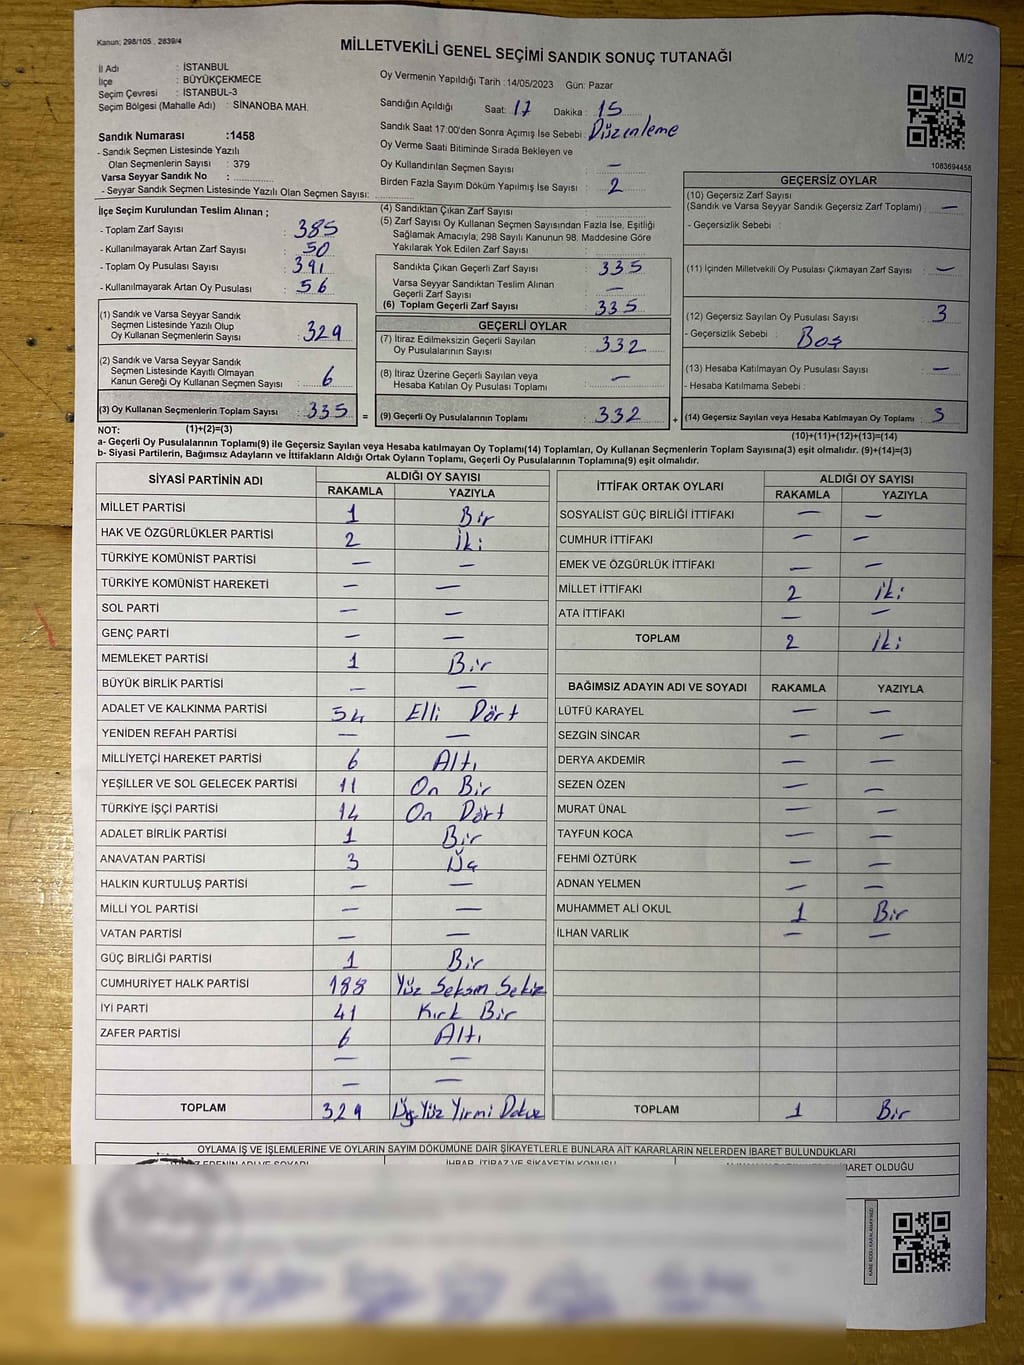 Kanun: 298/105 , 2839/4
MİLLETVEKİLİ GENEL SEÇİMİ SANDIK SONUÇ TUTANAĞI
M/2
İl Adı : İSTANBUL
İlçe : BÜYÜKÇEKMECE
Seçim Çevresi : İSTANBUL-3
Seçim Bölgesi (Mahalle Adı) : SİNANOBA MAH.
Sandık Numarası :1458
- Sandık Seçmen Listesinde Yazılı
Olan Seçmenlerin Sayısı : 379
Varsa Seyyar Sandık No :
- Seyyar Sandık Seçmen Listesinde Yazılı Olan Seçmen Sayısı:
Oy Vermenin Yapıldığı Tarih :14/05/2023 Gün: Pazar
Sandığın Açıldığı Saat: 17 Dakika : 15
Sandık Saat 17:00'den Sonra Açımış İse Sebebi : Düzenleme
Oy Verme Saati Bitiminde Sırada Bekleyen ve
Oy Kullandırılan Seçmen Sayısı : —
Birden Fazla Sayım Döküm Yapılmış İse Sayısı : 2
1083694458
İlçe Seçim Kurulundan Teslim Alınan ;
- Toplam Zarf Sayısı : 385
- Kullanılmayarak Artan Zarf Sayısı : 50
- Toplam Oy Pusulası Sayısı : 391
- Kullanılmayarak Artan Oy Pusulası : 56
(1) Sandık ve Varsa Seyyar Sandık
Seçmen Listesinde Yazılı Olup
Oy Kullanan Seçmenlerin Sayısı : 329
(2) Sandık ve Varsa Seyyar Sandık
Seçmen Listesinde Kayıtlı Olmayan
Kanun Gereği Oy Kullanan Seçmen Sayısı : 6
(3) Oy Kullanan Seçmenlerin Toplam Sayısı : 335 =
(4) Sandıktan Çıkan Zarf Sayısı :
(5) Zarf Sayısı Oy Kullanan Seçmen Sayısından Fazla İse, Eşitliği
Sağlamak Amacıyla, 298 Sayılı Kanunun 98. Maddesine Göre
Yakılarak Yok Edilen Zarf Sayısı :
Sandıkta Çıkan Geçerli Zarf Sayısı : 335
Varsa Seyyar Sandıktan Teslim Alınan
Geçerli Zarf Sayısı : —
(6) Toplam Geçerli Zarf Sayısı : 335
GEÇERLİ OYLAR
(7) İtiraz Edilmeksizin Geçerli Sayılan
Oy Pusulalarının Sayısı : 332
(8) İtiraz Üzerine Geçerli Sayılan veya
Hesaba Katılan Oy Pusulası Toplamı : —
(9) Geçerli Oy Pusulalarının Toplamı : 332 +
GEÇERSİZ OYLAR
(10) Geçersiz Zarf Sayısı
(Sandık ve Varsa Seyyar Sandık Geçersiz Zarf Toplamı) : —
- Geçersizlik Sebebi :
(11) İçinden Milletvekili Oy Pusulası Çıkmayan Zarf Sayısı : —
(12) Geçersiz Sayılan Oy Pusulası Sayısı : 3
- Geçersizlik Sebebi : Boş
(13) Hesaba Katılmayan Oy Pusulası Sayısı : —
- Hesaba Katılmama Sebebi :
(14) Geçersiz Sayılan veya Hesaba Katılmayan Oy Toplamı : 3
NOT: (1)+(2)=(3)
(10)+(11)+(12)+(13)=(14)
a- Geçerli Oy Pusulalarının Toplamı(9) ile Geçersiz Sayılan veya Hesaba katılmayan Oy Toplamı(14) Toplamları, Oy Kullanan Seçmenlerin Toplam Sayısına(3) eşit olmalıdır. (9)+(14)=(3)
b- Siyasi Partilerin, Bağımsız Adayların ve İttifakların Aldığı Ortak Oyların Toplamı, Geçerli Oy Pusulalarının Toplamına(9) eşit olmalıdır.
SİYASİ PARTİNİN ADI ALDIĞI OY SAYISI
RAKAMLA YAZIYLA
MİLLET PARTİSİ 1 Bir
HAK VE ÖZGÜRLÜKLER PARTİSİ 2 İki
TÜRKİYE KOMÜNİST PARTİSİ — —
TÜRKİYE KOMÜNİST HAREKETİ — —
SOL PARTİ — —
GENÇ PARTİ — —
MEMLEKET PARTİSİ 1 Bir
BÜYÜK BİRLİK PARTİSİ — —
ADALET VE KALKINMA PARTİSİ 54 Elli Dört
YENİDEN REFAH PARTİSİ — —
MİLLİYETÇİ HAREKET PARTİSİ 6 Altı
YEŞİLLER VE SOL GELECEK PARTİSİ 11 On Bir
TÜRKİYE İŞÇİ PARTİSİ 14 On Dört
ADALET BİRLİK PARTİSİ 1 Bir
ANAVATAN PARTİSİ 3 Üç
HALKIN KURTULUŞ PARTİSİ — —
MİLLİ YOL PARTİSİ — —
VATAN PARTİSİ — —
GÜÇ BİRLİĞİ PARTİSİ 1 Bir
CUMHURİYET HALK PARTİSİ 188 Yüz Seksen Sekiz
İYİ PARTİ 41 Kırk Bir
ZAFER PARTİSİ 6 Altı
— —
— —
TOPLAM 329 Üç Yüz Yirmi Dokuz
İTTİFAK ORTAK OYLARI ALDIĞI OY SAYISI
RAKAMLA YAZIYLA
SOSYALİST GÜÇ BİRLİĞİ İTTİFAKI — —
CUMHUR İTTİFAKI — —
EMEK VE ÖZGÜRLÜK İTTİFAKI — —
MİLLET İTTİFAKI 2 İki
ATA İTTİFAKI — —
TOPLAM 2 İki
BAĞIMSIZ ADAYIN ADI VE SOYADI RAKAMLA YAZIYLA
LÜTFÜ KARAYEL — —
SEZGİN SİNCAR — —
DERYA AKDEMİR — —
SEZEN ÖZEN — —
MURAT ÜNAL — —
TAYFUN KOCA — —
FEHMİ ÖZTÜRK — —
ADNAN YELMEN — —
MUHAMMET ALİ OKUL 1 Bir
İLHAN VARLIK — —
TOPLAM 1 Bir
OYLAMA İŞ VE İŞLEMLERİNE VE OYLARIN SAYIM DÖKÜMÜNE DAİR ŞİKAYETLERLE BUNLARA AİT KARARLARIN NELERDEN İBARET BULUNDUKLARI
EDENİN ADI VE SOYADI İHBAR, İTİRAZ VE ŞİKAYETİN KONUSU İBARET OLDUĞU